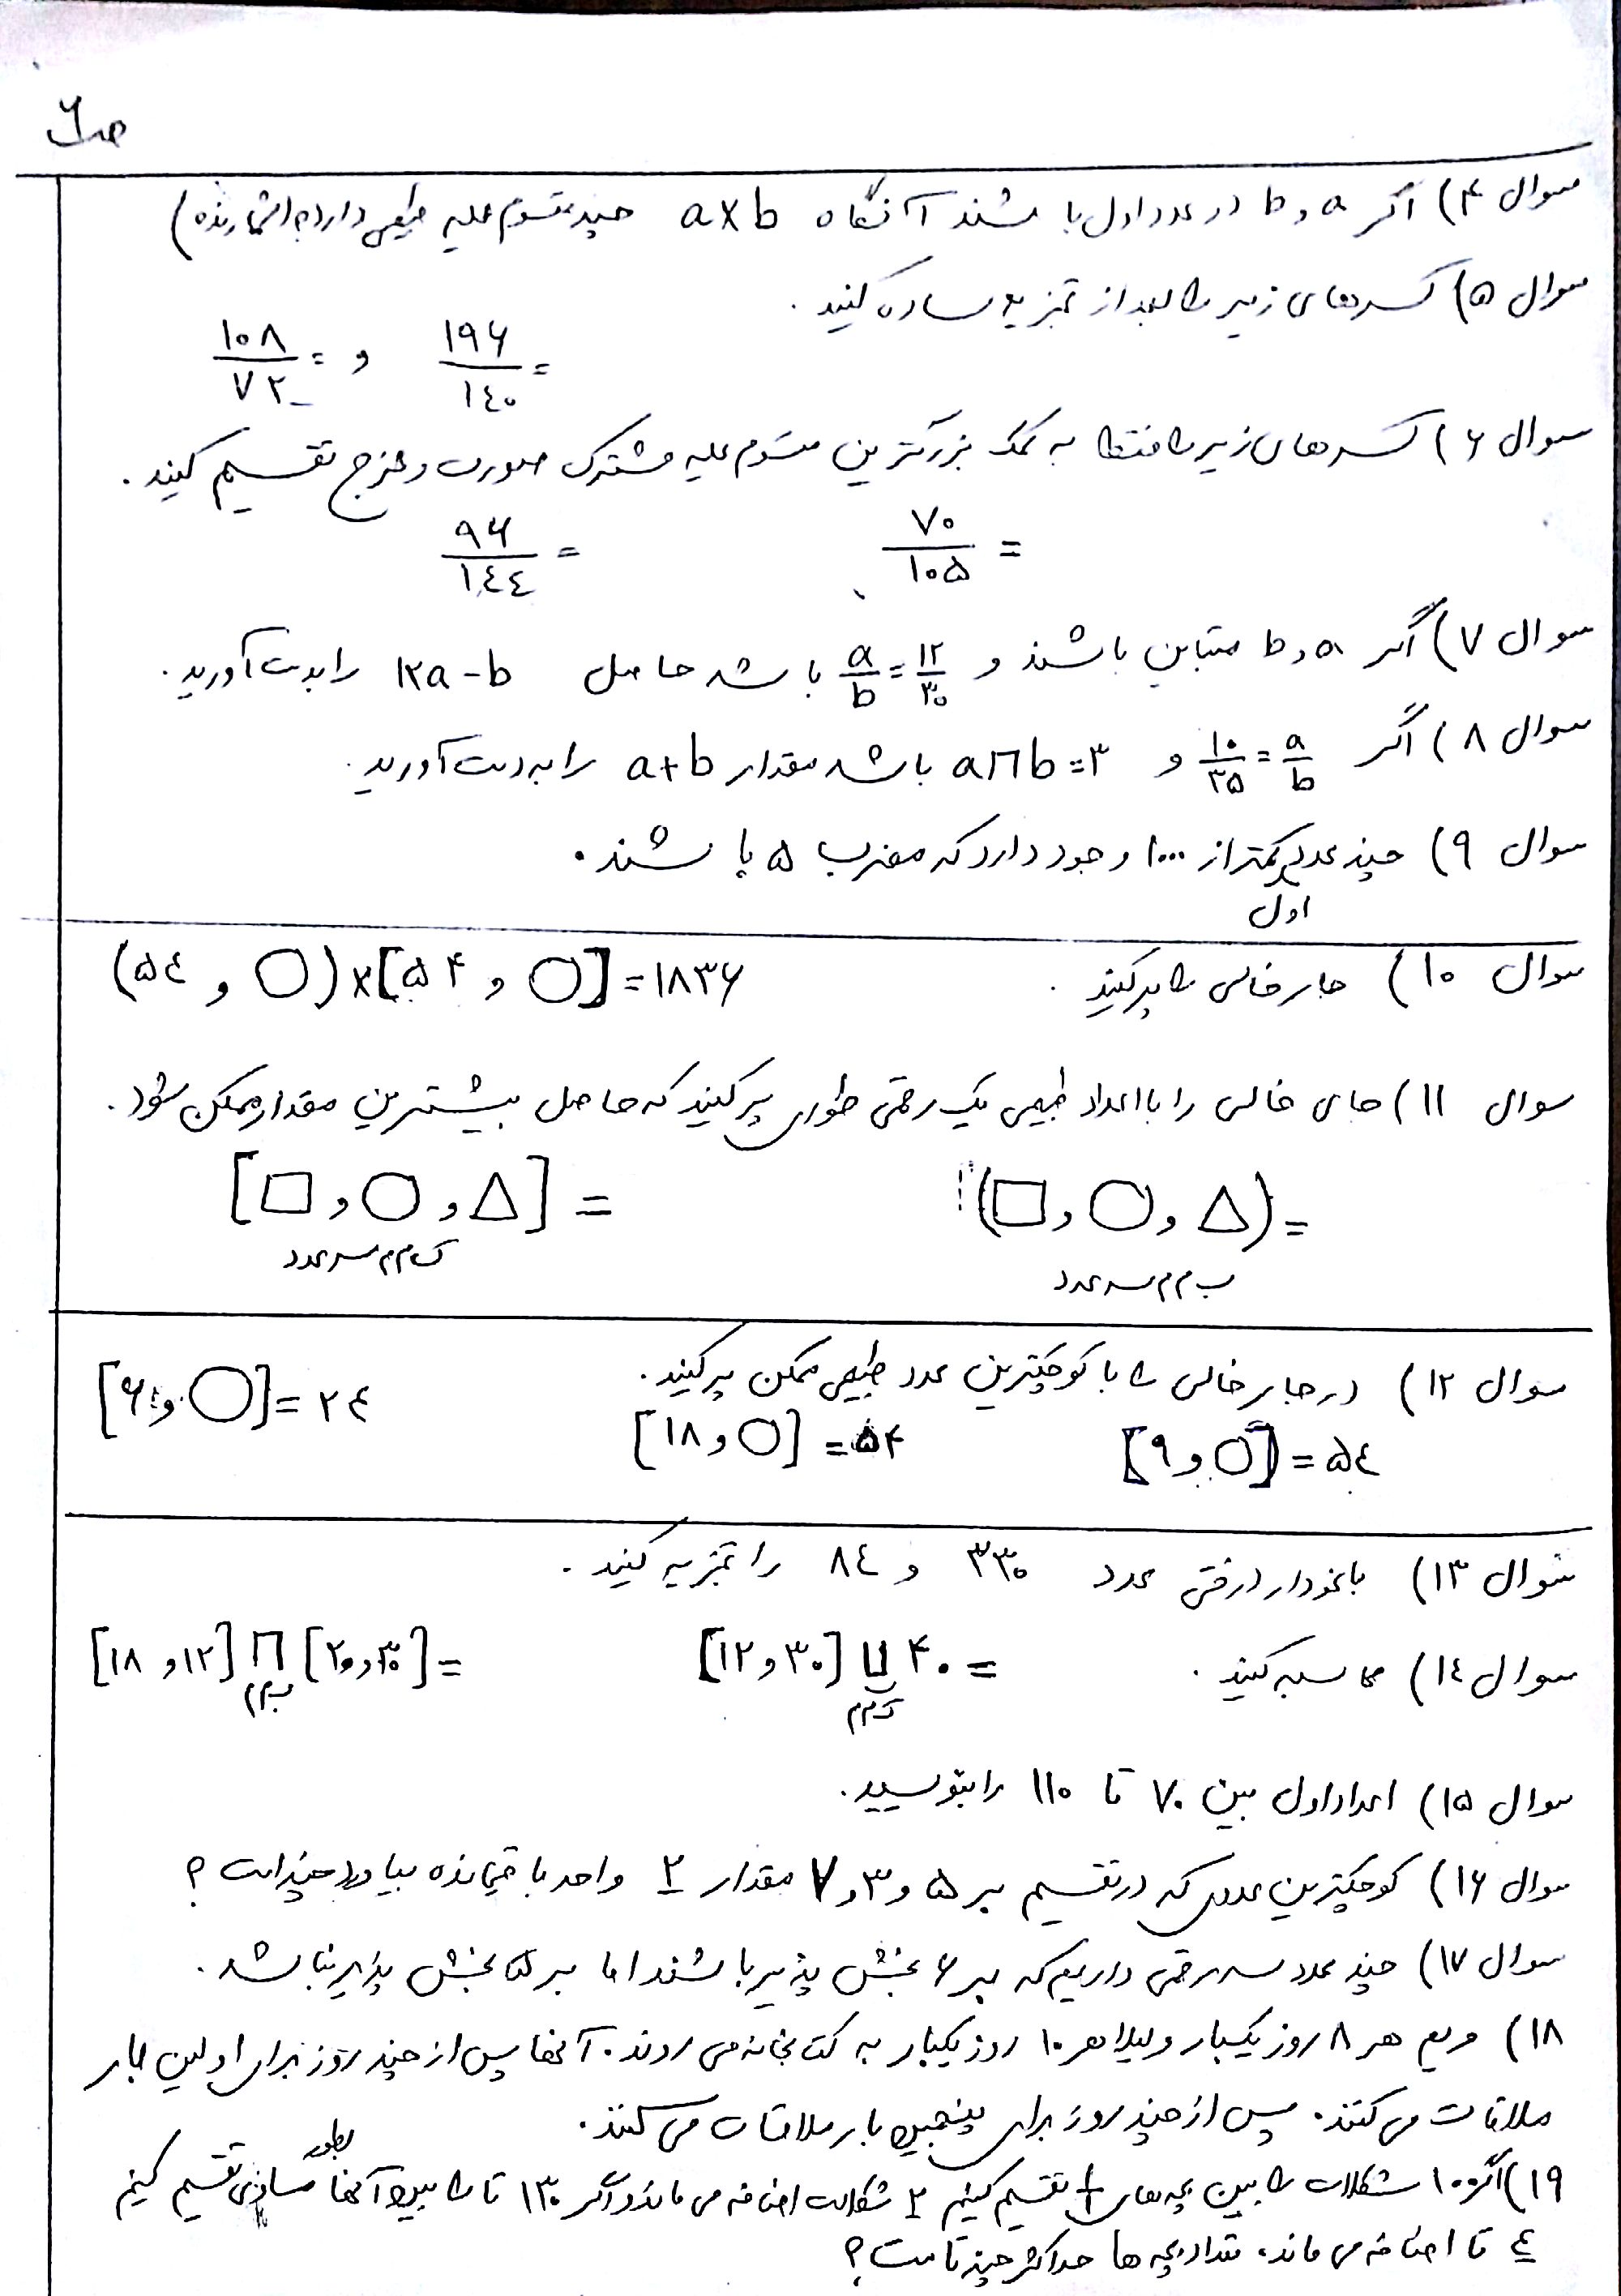 ص۶
سوال ۴) اگر a و b دو عدد اول باشند آنگاه a×b چند مقسوم علیه طبیعی دارد؟ (شمارنده)
سوال ۵) کسرهای زیر را بعد از تجزیه ساده کنید.
۱۹۶/۱۴۰ = و ۱۰۸/۷۲ =
سوال ۶) کسرهای زیر را فقط به کمک بزرگترین مقسوم علیه مشترک صورت و مخرج تقسیم کنید.
۷۰/۱۰۵ = ۹۶/۱۴۴ =
سوال ۷) اگر a و b متباین باشند و a/b = ۱۲/۳۰ باشد حاصل ۱۲a-b را بدست آورید.
سوال ۸) اگر a/b = ۱۰/۳۵ و a⊓b=۳ باشد مقدار a+b را به دست آورید.
سوال ۹) چند عدد اول کمتر از ۱۰۰۰ وجود دارد که مضرب ۵ باشند.
سوال ۱۰) جای خالی را پر کنید. (۵۴ و ○)×[۵۴ و ○]=۱۸۳۶
سوال ۱۱) جای خالی را با اعداد طبیعی یک رقمی طوری پر کنید که حاصل بیشترین مقدار ممکن شود.
(□ و ○ و △) = [□ و ○ و △] =
ب م م سه عدد ک م م سه عدد
سوال ۱۲) در جای خالی را با کوچکترین عدد طبیعی ممکن پر کنید.
[۹ و ○]=۵۴ [۱۸ و ○]=۵۴ [۶ و ○]=۲۴
سوال ۱۳) با نمودار درختی عدد ۳۳۰ و ۸۴ را تجزیه کنید.
سوال ۱۴) محاسبه کنید. [۱۲ و ۳۰] ⊔ ۴۰ = [۱۸ و ۱۲] ⊓ [۲۰ و ۳۰] =
ک م م ب م م
سوال ۱۵) اعداد اول بین ۷۰ تا ۱۱۰ را بنویسید.
سوال ۱۶) کوچکترین عددی که در تقسیم بر ۵ و ۳ و ۷ مقدار ۲ واحد باقیمانده بیاورد چند است؟
سوال ۱۷) چند عدد سه رقمی داریم که بر ۶ بخش پذیر باشند اما بر ۵ بخش پذیر نباشد.
۱۸) مریم هر ۸ روز یکبار و لیلا هر ۱۰ روز یکبار به کتابخانه می روند. آنها پس از چند روز برای اولین بار
ملاقات می کنند. پس از چند روز برای پنجمین بار ملاقات می کنند.
۱۹) اگر ۱۰۰ شکلات را بین بچه های تقسیم کنیم ۲ شکلات اضافه می ماند و اگر ۱۳۰ تا را بین آنها بطور مساوی تقسیم کنیم
۴ تا اضافه می ماند. تعداد بچه ها حداکثر چند تا است؟